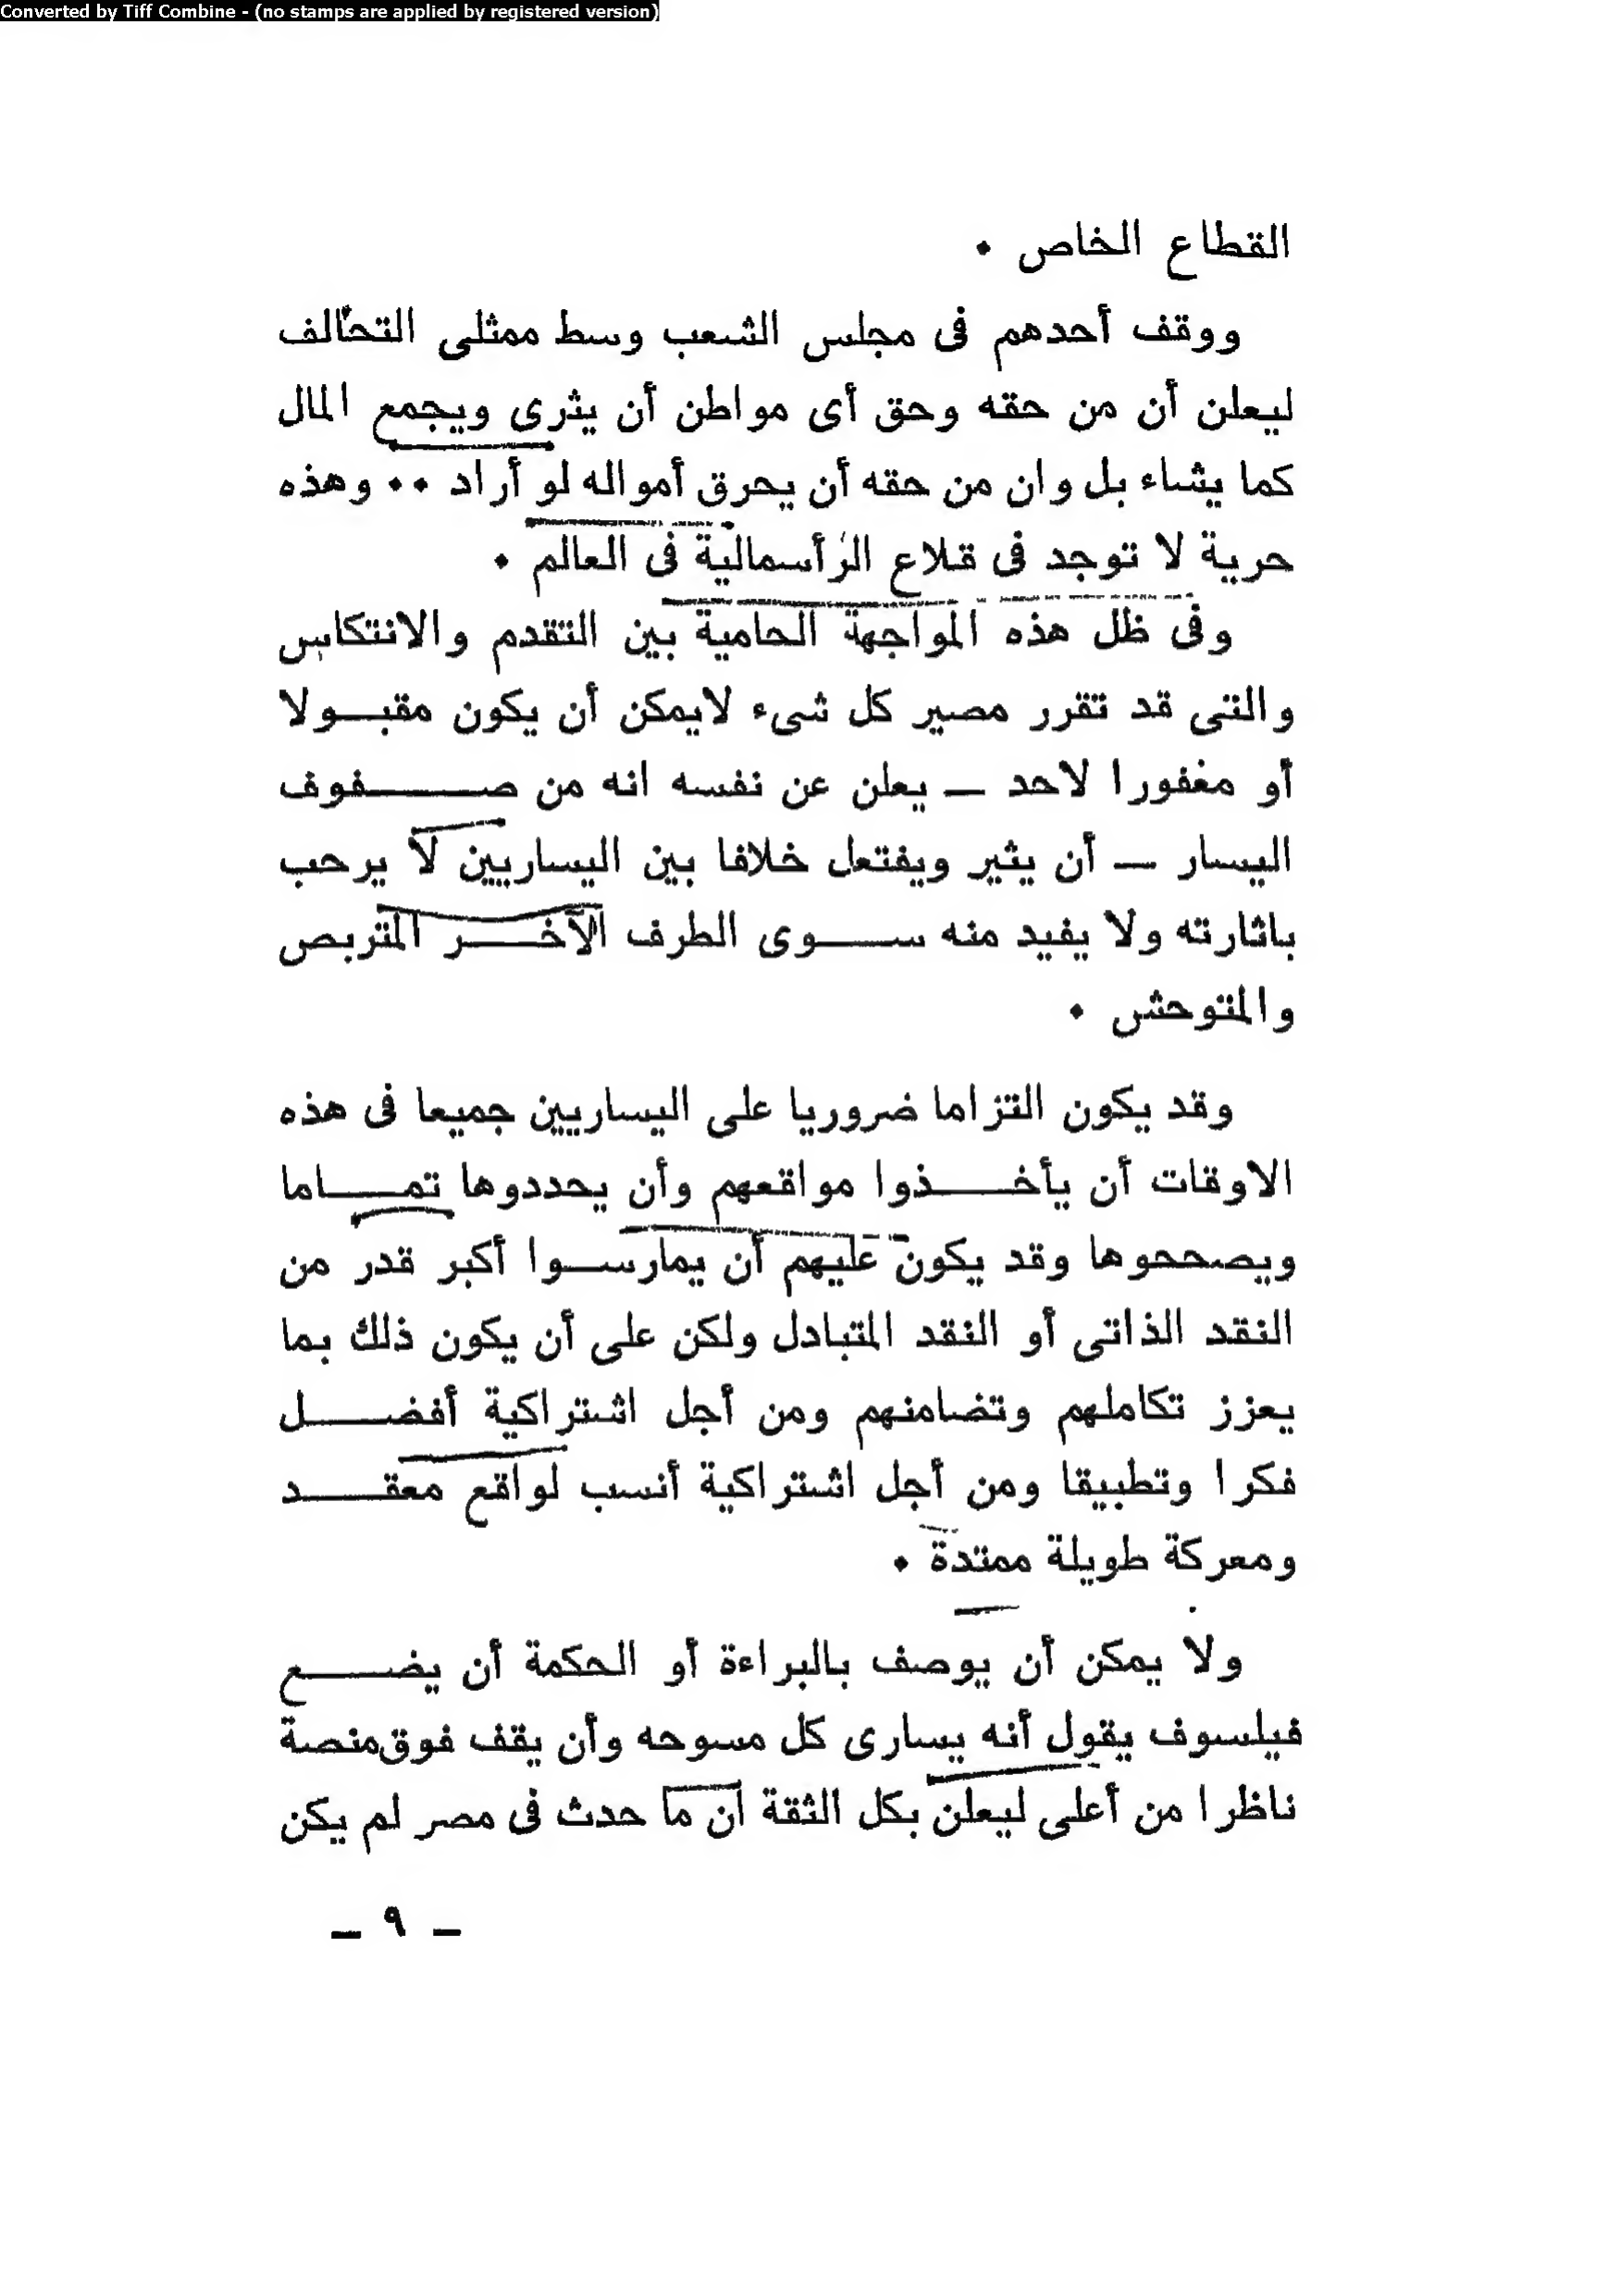 Converted by Tiff Combine - (no stamps are applied by registered version)
القطاع الخاص .
ووقف أحدهم فى مجلس الشعب وسط ممثلى التحالف
ليعلن أن من حقه وحق أى مواطن أن يثرى ويجمع المال
كما يشاء بل وان من حقه أن يحرق أمواله لو أراد .. وهذه
حرية لا توجد فى قلاع الرأسمالية فى العالم .
وفى ظل هذه المواجهة الحامية بين التقدم والانتكاس
والتى قد تقرر مصير كل شىء لايمكن أن يكون مقبولا
أو مغفورا لاحد — يعلن عن نفسه انه من صفوف
اليسار — أن يثير ويفتعل خلافا بين اليساريين لا يرحب
باثارته ولا يفيد منه سوى الطرف الآخر المتربص
والمتوحش .
وقد يكون التزاما ضروريا على اليساريين جميعا فى هذه
الاوقات أن يأخذوا مواقعهم وأن يحددوها تماما
ويصححوها وقد يكون عليهم أن يمارسوا أكبر قدر من
النقد الذاتى أو النقد المتبادل ولكن على أن يكون ذلك بما
يعزز تكاملهم وتضامنهم ومن أجل اشتراكية أفضل
فكرا وتطبيقا ومن أجل اشتراكية أنسب لواقع معقد
ومعركة طويلة ممتدة .
ولا يمكن أن يوصف بالبراءة أو الحكمة أن يضع
فيلسوف يقول أنه يسارى كل مسوحه وأن يقف فوق منصة
ناظرا من أعلى ليعلن بكل الثقة أن ما حدث فى مصر لم يكن
— ٩ —